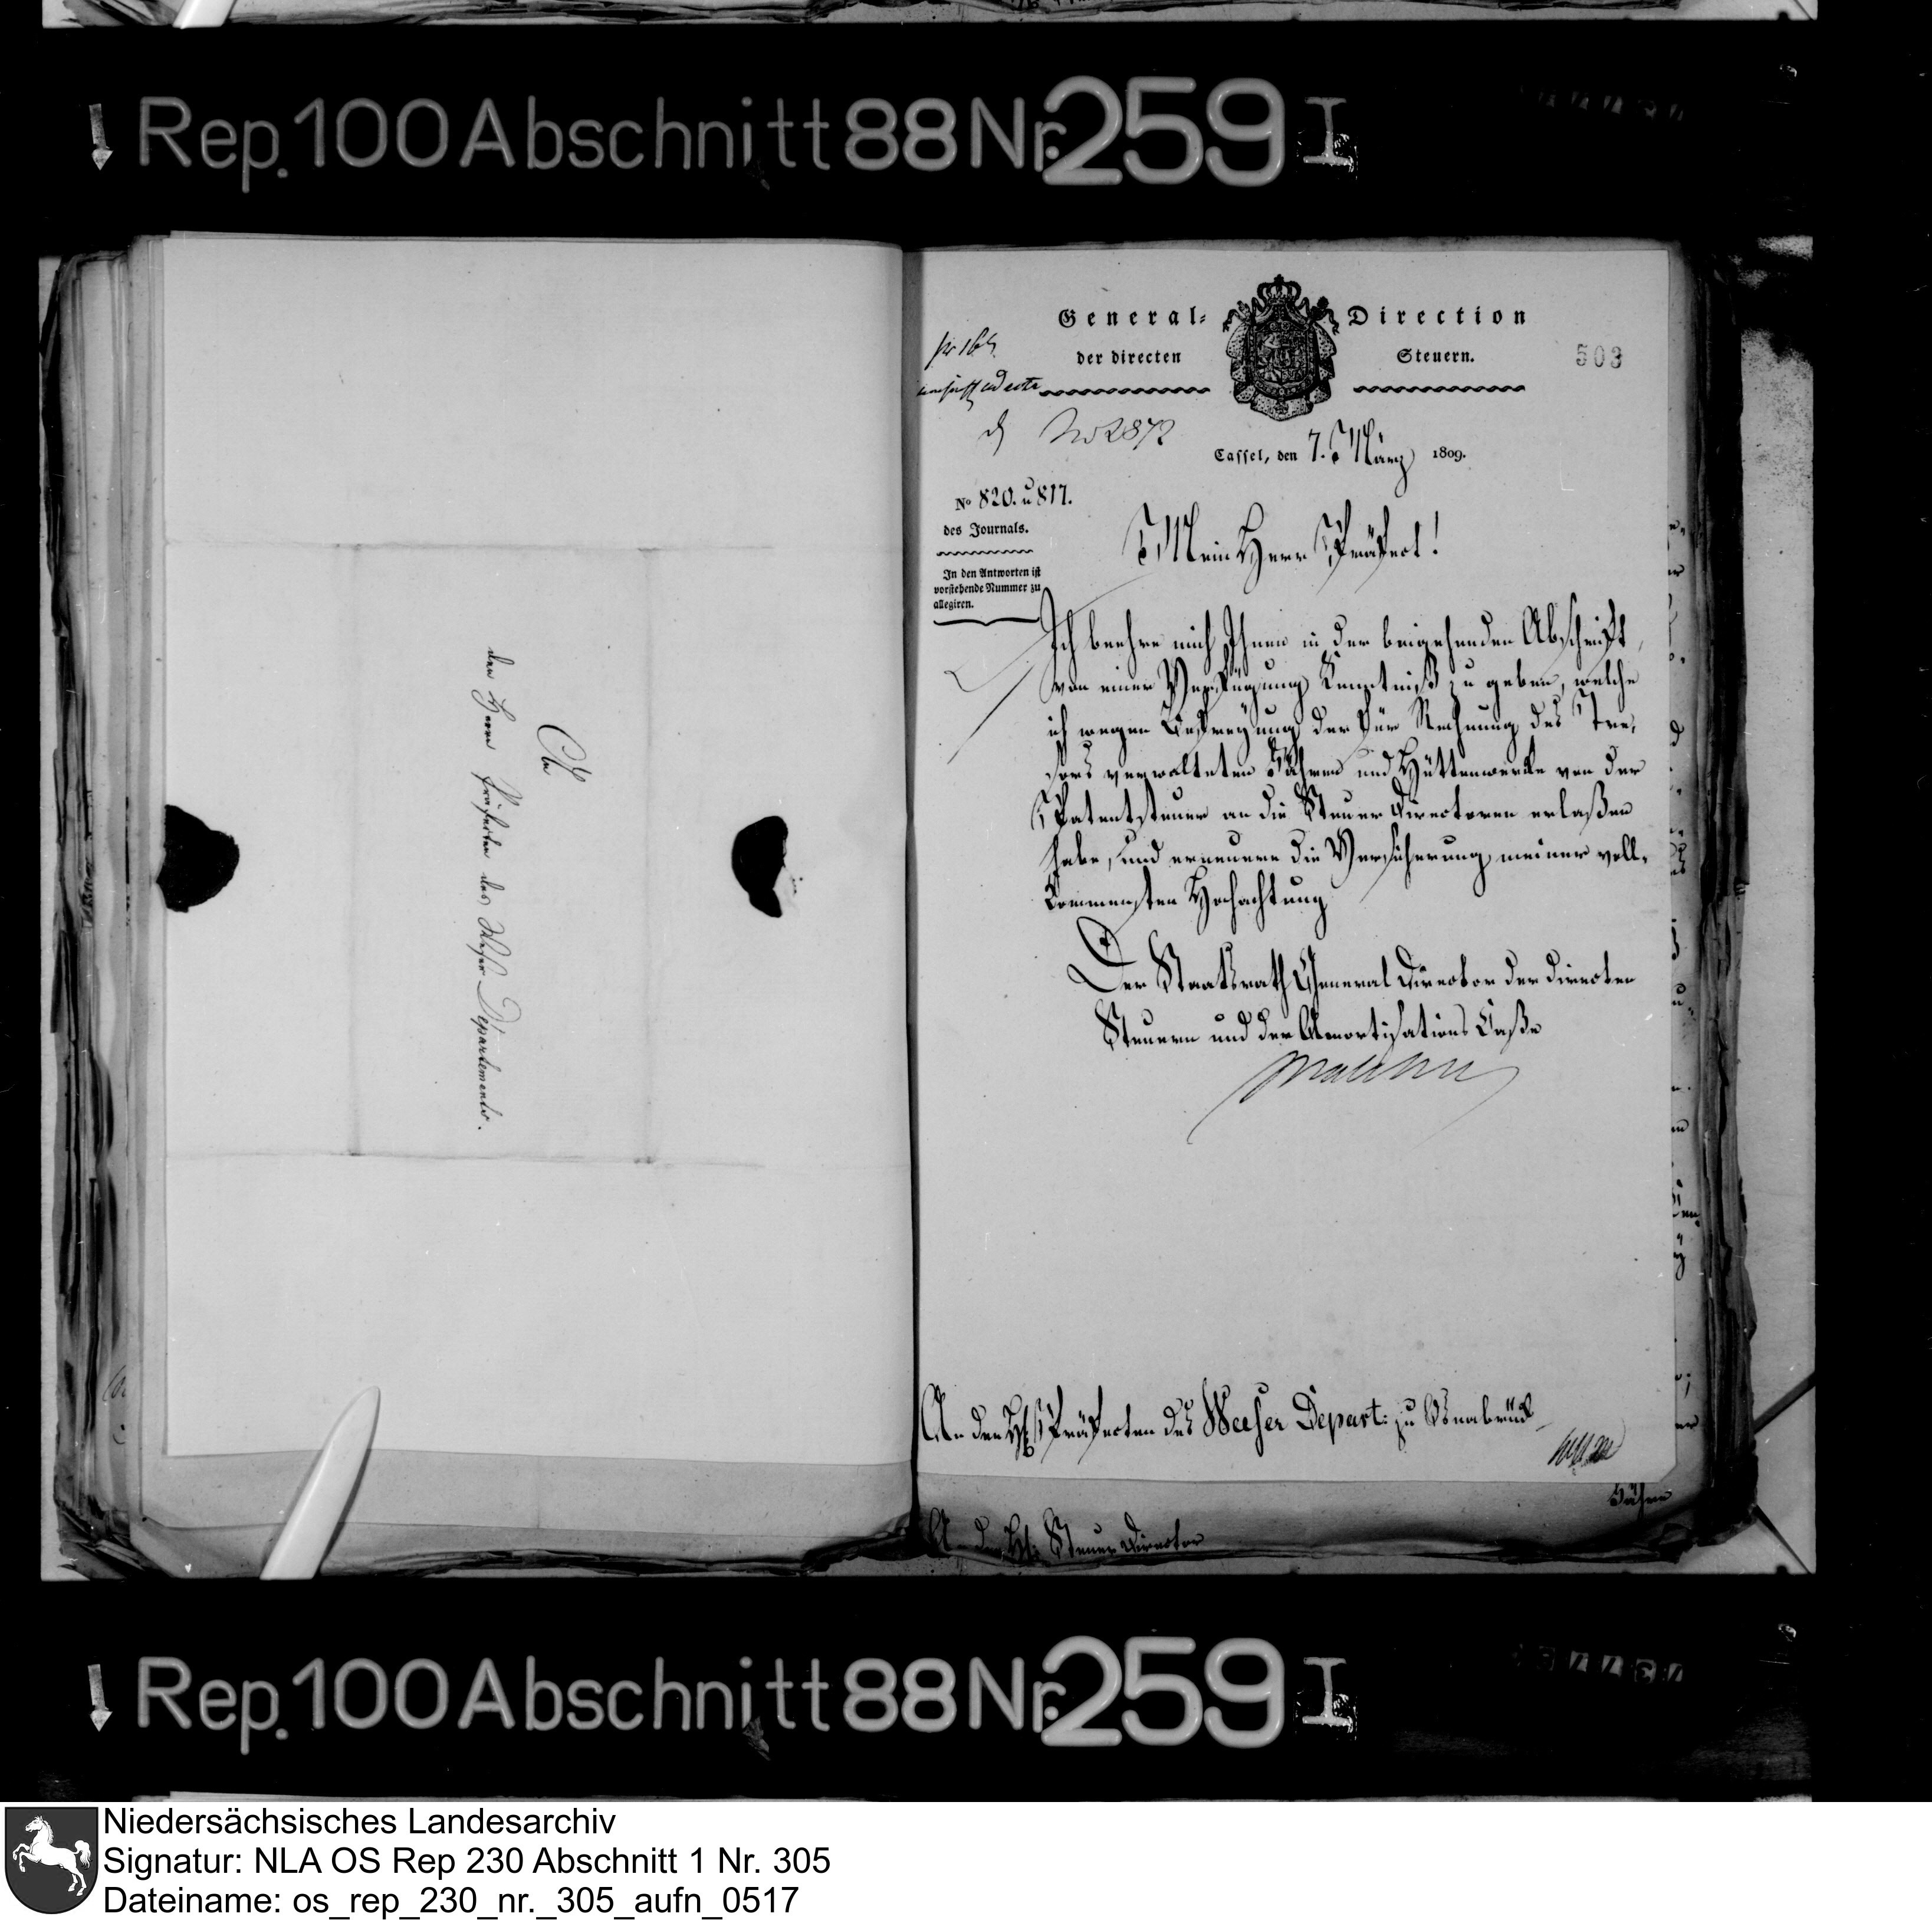 Rep. 100 Abschnitt 88 Nr. 259 I
An
den Herrn Präfecten des Weser Departements.
General-Direction
der directen Steuern.
503
No 2872
Cassel, den 7. März 1809.
No 820. u 817.
des Journals.
In den Antworten ist
vorstehende Nummer zu
allegiren.
Mein Herr Präfect!
Ich beehre mich Ihnen in der beigehenden Abschrift,
von einer Verfügung Kenntniß zu geben, welche
ich wegen Befreyung der für Rechnung des Tre-
sors verwalteten und Hüttenwerke von der
Patentsteuer an die Steuer Directoren erlaßen
habe, und erneuere die Versicherung meiner voll-
kommensten Hochachtung
Der Staatsrath General Director der directen
Steuern und der Amortisations Caße
Malchus
An den H. Präfecten des Weser Depart: zu Osnabrück
An den H. Steuer Director
Rep. 100 Abschnitt 88 Nr. 259 I
Niedersächsisches Landesarchiv
Signatur: NLA OS Rep 230 Abschnitt 1 Nr. 305
Dateiname: os_rep_230_nr._305_aufn_0517